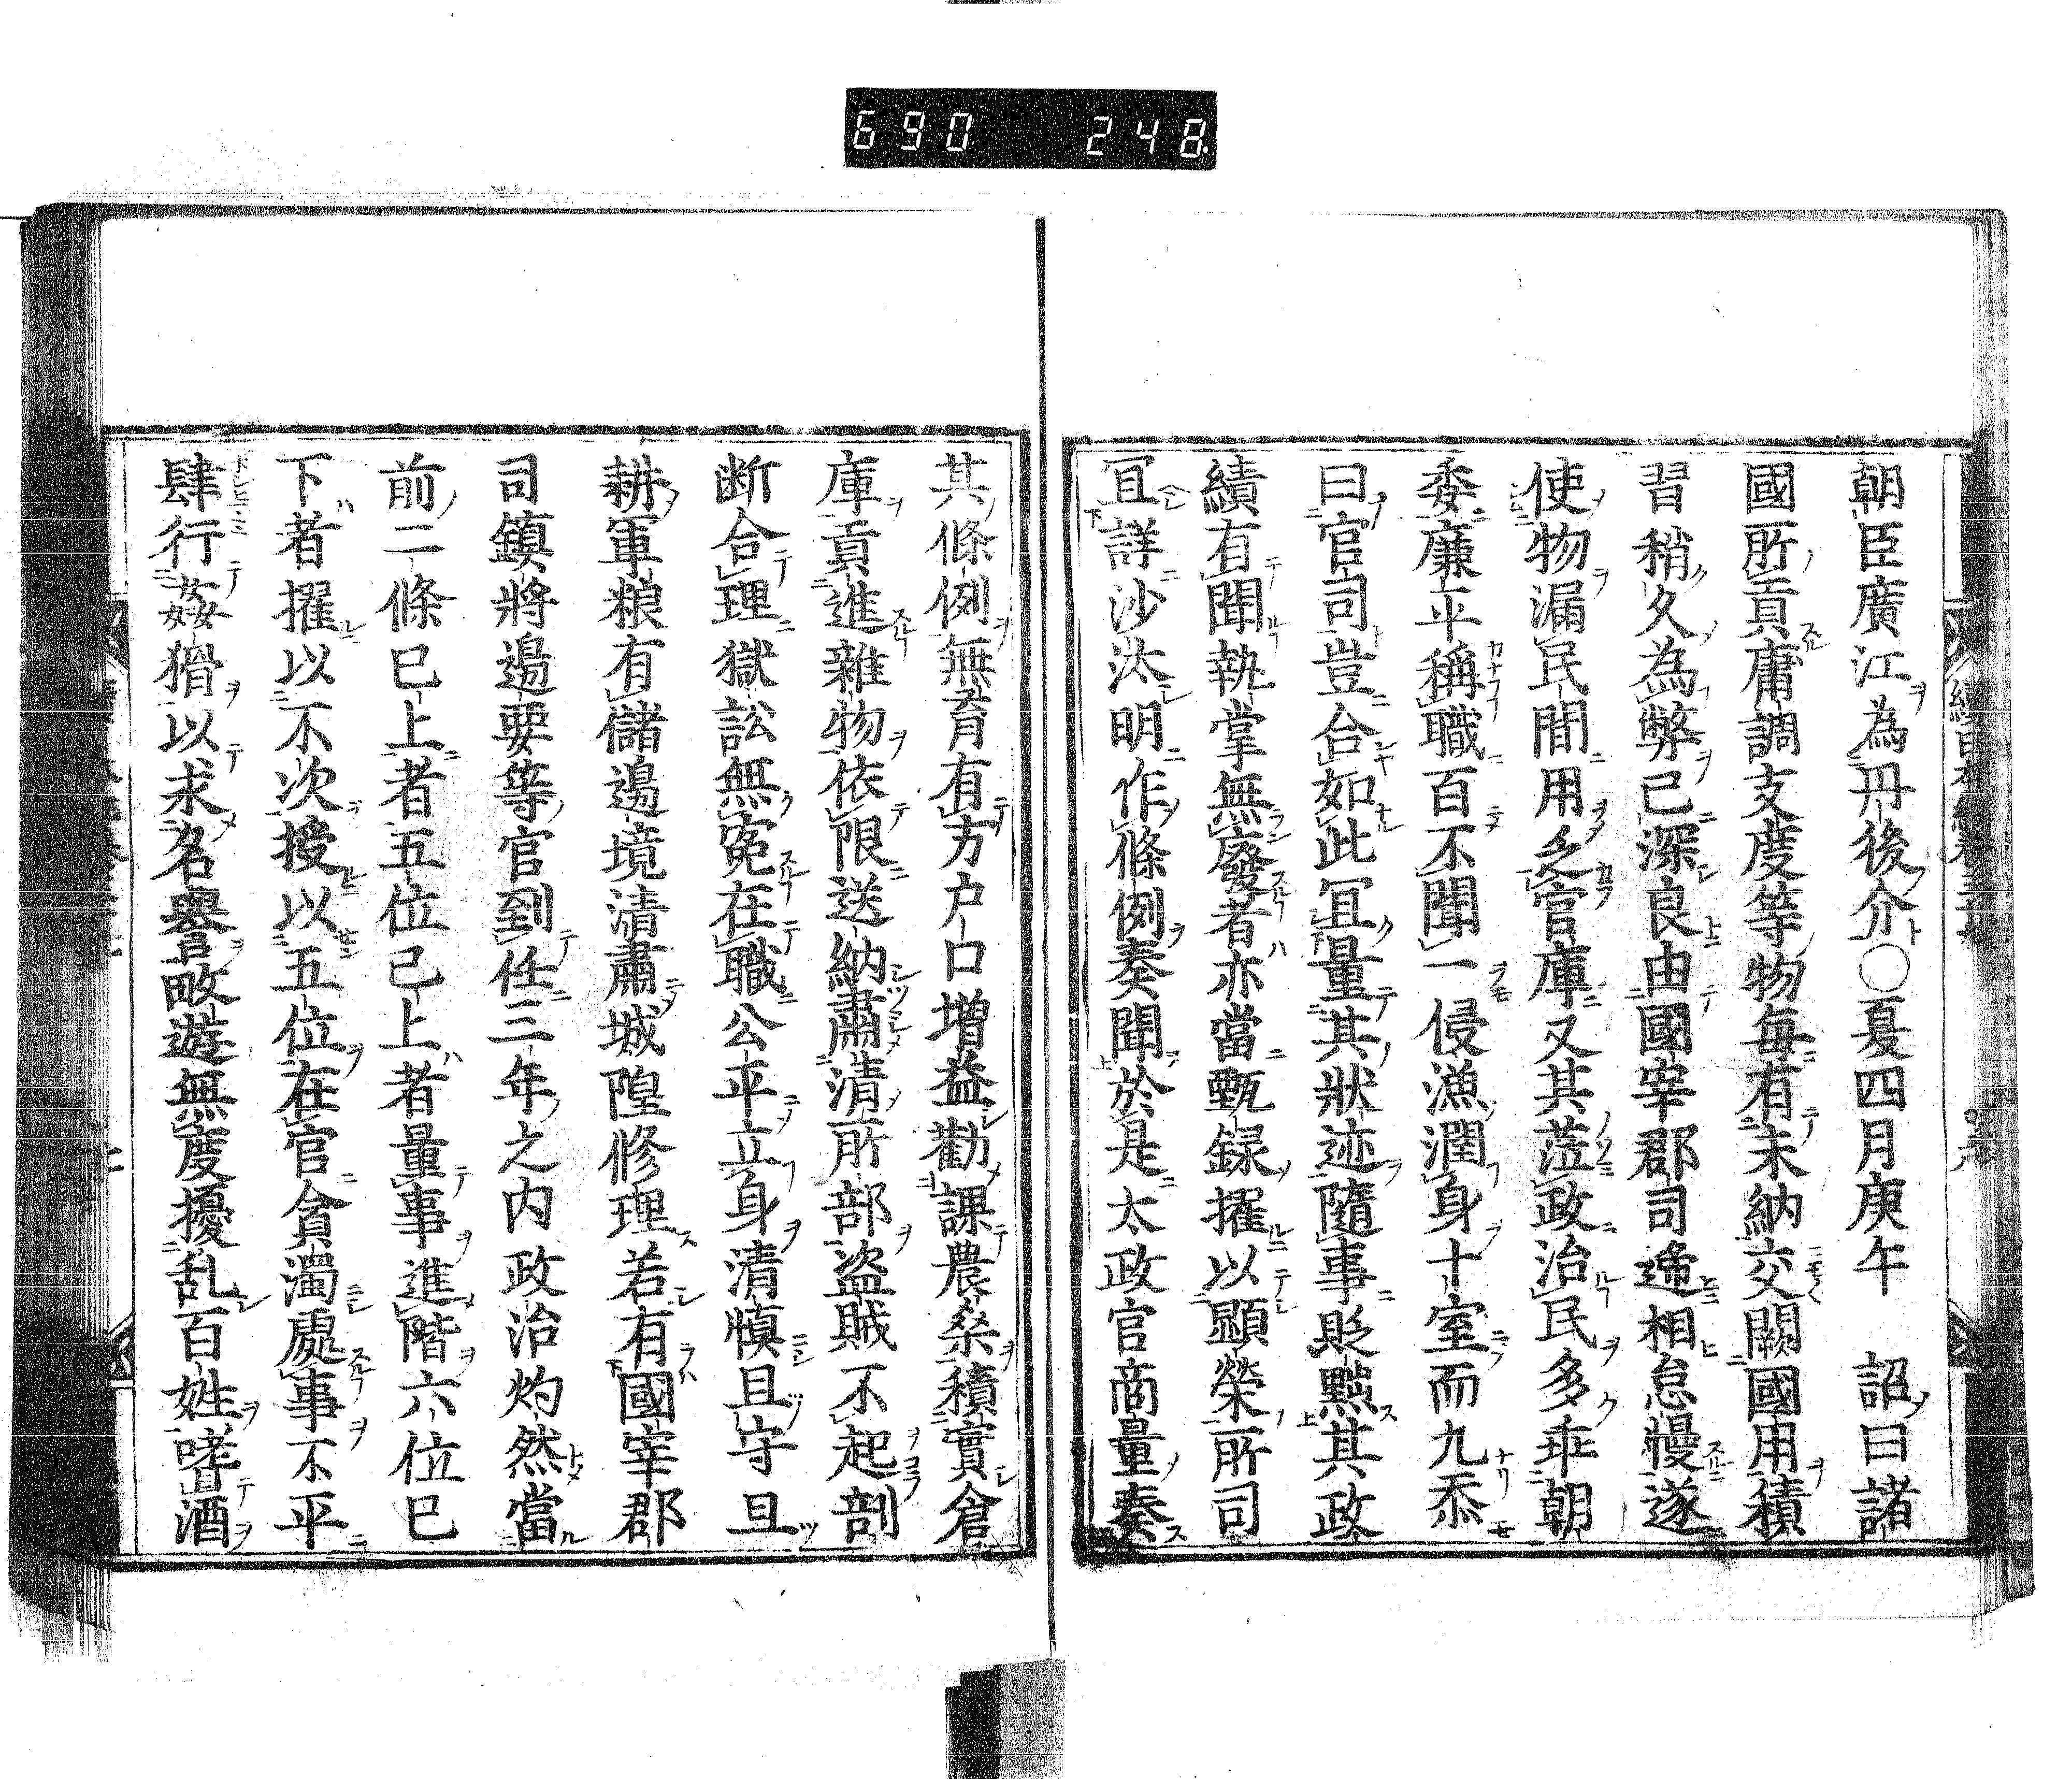 690 248
朝臣廣江為丹後介○夏四月庚午 詔曰諸
國所貢庸調支度等物毎有未納交闕國用積
習稍久為弊已深良由國宰郡司逓相怠慢遂
使物漏民間用乏官庫又其莅政治民多乖朝
委廉平稱職百不聞一侵漁潤身十室而九忝
曰官司豈合如此冝量其狀迹隨事貶黜其政
績有聞執掌無廢者亦當甄録擢以顯榮所司
冝詳沙汰明作條例奏聞於是太政官商量奏
其條例無育有方户口増益勸課農桑積實倉
庫貢進雜物依限送納肅清所部盗賊不起剖
断合理獄訟無寃在職公平立身清慎且守且
耕軍粮有儲邉境清肅城隍修理若有國宰郡
司鎮將邉要等官到任三年之内政治灼然當
前二條已上者五位已上者量事進階六位已
下者擢以不次授以五位在官貪濁處事不平
肆行姦猾以求名譽畋遊無度擾乱百姓嗜酒